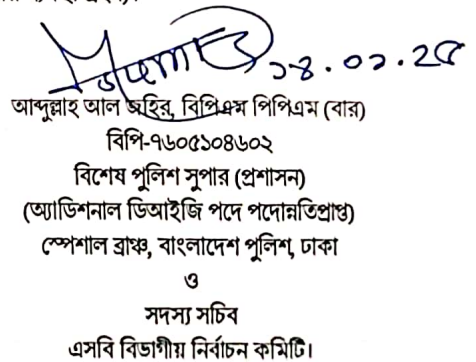 ১৪.০১.২৫
আব্দুল্লাহ আল জহির, বিপিএম পিপিএম (বার)
বিপি-৭৬০৫১০৪৬০২
বিশেষ পুলিশ সুপার (প্রশাসন)
(অ্যাডিশনাল ডিআইজি পদে পদোন্নতিপ্রাপ্ত)
স্পেশাল ব্রাঞ্চ, বাংলাদেশ পুলিশ, ঢাকা
ও
সদস্য সচিব
এসবি বিভাগীয় নির্বাচন কমিটি।